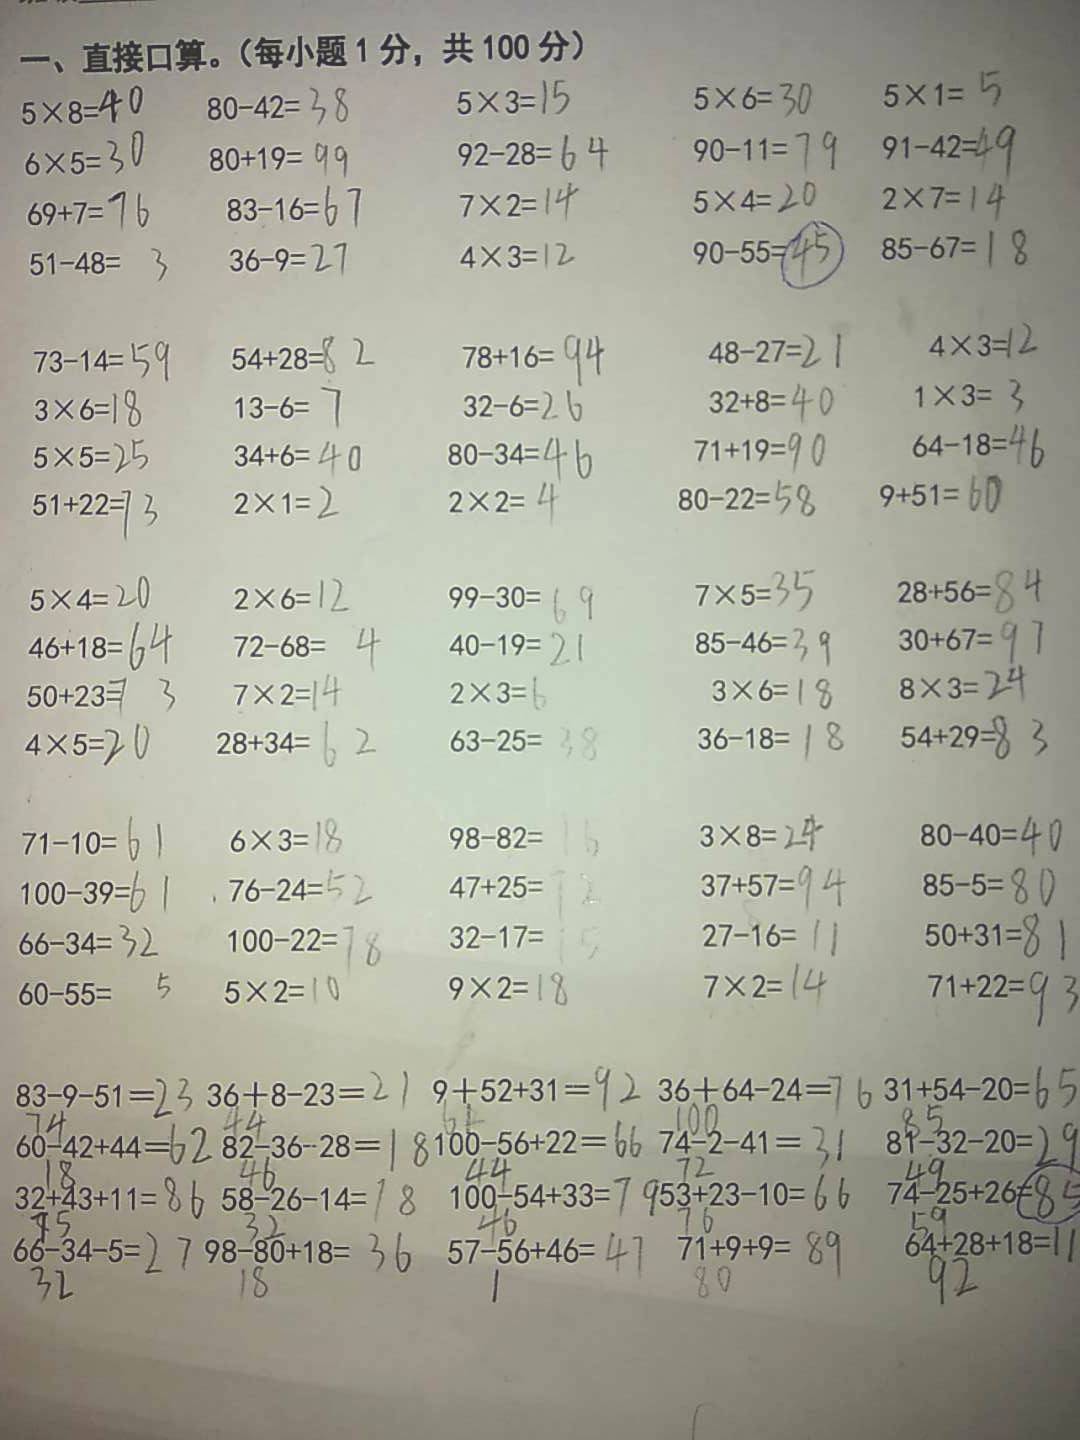 一、直接口算。（每小题1分，共100分）
5×8=40 80-42=38 5×3=15 5×6=30 5×1=5
6×5=30 80+19=99 92-28=64 90-11=79 91-42=49
69+7=76 83-16=67 7×2=14 5×4=20 2×7=14
51-48=3 36-9=27 4×3=12 90-55=45 85-67=18
73-14=59 54+28=82 78+16=94 48-27=21 4×3=12
3×6=18 13-6=7 32-6=26 32+8=40 1×3=3
5×5=25 34+6=40 80-34=46 71+19=90 64-18=46
51+22=73 2×1=2 2×2=4 80-22=58 9+51=60
5×4=20 2×6=12 99-30=69 7×5=35 28+56=84
46+18=64 72-68=4 40-19=21 85-46=39 30+67=97
50+23=73 7×2=14 2×3=6 3×6=18 8×3=24
4×5=20 28+34=62 63-25=38 36-18=18 54+29=83
71-10=61 6×3=18 98-82=16 3×8=24 80-40=40
100-39=61 76-24=52 47+25=72 37+57=94 85-5=80
66-34=32 100-22=78 32-17=15 27-16=11 50+31=81
60-55=5 5×2=10 9×2=18 7×2=14 71+22=93
83-9-51=23 36+8-23=21 9+52+31=92 36+64-24=76 31+54-20=65
74 44 61 100 85
60-42+44=62 82-36-28=18 100-56+22=66 74-2-41=31 81-32-20=29
18 46 44 72 49
32+43+11=86 58-26-14=18 100-54+33=79 53+23-10=66 74-25+26=85
75 32 46 76 59
66-34-5=27 98-80+18=36 57-56+46=47 71+9+9=89 64+28+18=11
32 18 1 80 92